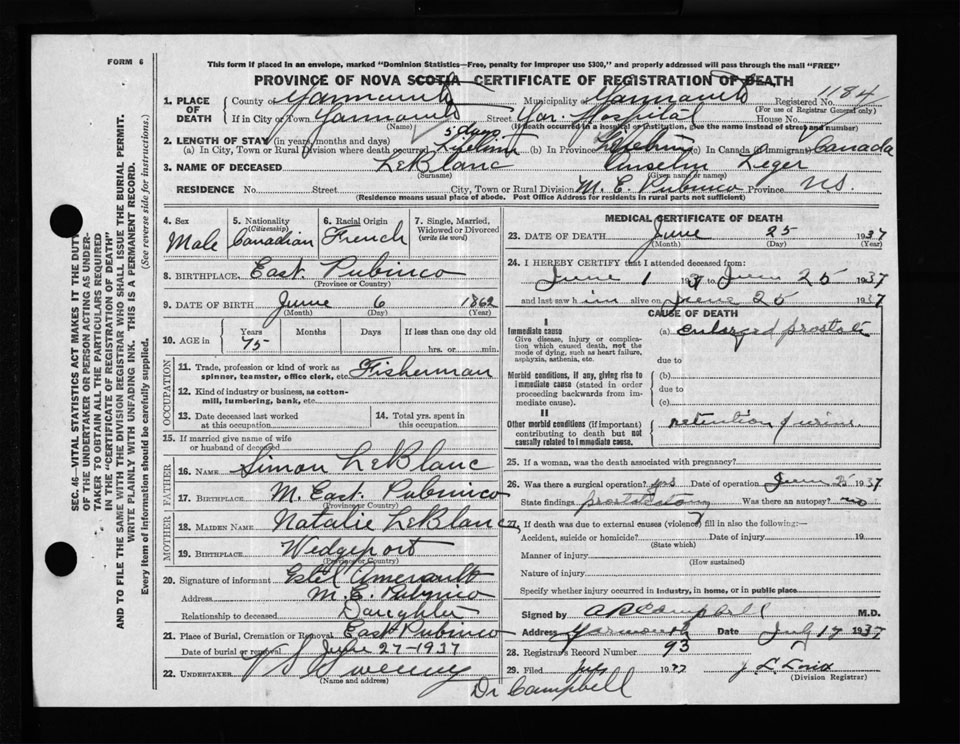 FORM 6
This form if placed in an envelope, marked "Dominion Statistics—Free, penalty for improper use $300," and properly addressed will pass through the mail "FREE"
PROVINCE OF NOVA SCOTIA CERTIFICATE OF REGISTRATION OF DEATH
1. PLACE OF DEATH County of Yarmouth Municipality of Yarmouth Registered No. 1184
(For use of Registrar General only)
If in City or Town Yarmouth Street Yar. Hospital House No.
(Name) (If death occurred in a hospital or institution, give the name instead of street and number)
2. LENGTH OF STAY (in years, months and days) 5 days
(a) In City, Town or Rural Division where death occurred Lifetime (b) In Province Lifetime (c) In Canada (if immigrant) Canada
3. NAME OF DECEASED LeBlanc Anselm Leger
(Surname) (Given name or names)
RESIDENCE No. Street City, Town or Rural Division M. E. Pubnico Province N.S.
(Residence means usual place of abode. Post Office Address for residents in rural parts not sufficient)
4. Sex Male
5. Nationality (Citizenship) Canadian
6. Racial Origin French
7. Single, Married, Widowed or Divorced (write the word)
8. BIRTHPLACE East Pubnico
(Province or Country)
9. DATE OF BIRTH June 6 1862
(Month) (Day) (Year)
10. AGE in Years 75 Months Days If less than one day old hrs. or min.
OCCUPATION
11. Trade, profession or kind of work as spinner, teamster, office clerk, etc. Fisherman
12. Kind of industry or business, as cotton-mill, lumbering, bank, etc.
13. Date deceased last worked at this occupation
14. Total yrs. spent in this occupation
15. If married give name of wife or husband of deceased
FATHER
16. NAME Simon LeBlanc
17. BIRTHPLACE M. East. Pubnico
(Province or Country)
MOTHER
18. MAIDEN NAME Natalie LeBlanc
19. BIRTHPLACE Wedgeport
(Province or Country)
20. Signature of informant Amerault
Address M. E. Pubnico
Relationship to deceased Daughter
21. Place of Burial, Cremation or Removal East Pubnico
Date of burial or removal 27-1937
22. UNDERTAKER V S Sweeny
(Name and address)
MEDICAL CERTIFICATE OF DEATH
23. DATE OF DEATH June 25 1937
(Month) (Day) (Year)
24. I HEREBY CERTIFY that I attended deceased from:
June 1 1937 to June 25 1937
and last saw him alive on June 25 1937
CAUSE OF DEATH
I
Immediate cause (a) enlarged prostate
Give disease, injury or complication which caused death, not the mode of dying, such as heart failure, asphyxia, asthenia, etc.
due to
Morbid conditions, if any, giving rise to immediate cause (stated in order proceeding backwards from immediate cause). (b)
due to
(c)
II
Other morbid conditions (if important) contributing to death but not causally related to immediate cause. retention of urine
25. If a woman, was the death associated with pregnancy?
26. Was there a surgical operation? yes Date of operation June 1937
State findings Was there an autopsy? no
27. If death was due to external causes (violence) fill in also the following:—
Accident, suicide or homicide? Date of injury 19
(State which)
Manner of injury
(How sustained)
Nature of injury
Specify whether injury occurred in industry, in home, or in public place
Signed by Campbell M.D.
Address Yarmouth Date July 17 1937
28. Registrar's Record Number 93
29. Filed July 1937
(Division Registrar)
Dr Campbell
SEC. 46—VITAL STATISTICS ACT MAKES IT THE DUTY
OF THE UNDERTAKER OR PERSON ACTING AS UNDER-
TAKER TO OBTAIN ALL THE PARTICULARS REQUIRED
IN THE "CERTIFICATE OF REGISTRATION OF DEATH"
AND TO FILE THE SAME WITH THE DIVISION REGISTRAR WHO SHALL ISSUE THE BURIAL PERMIT.
WRITE PLAINLY WITH UNFADING INK. THIS IS A PERMANENT RECORD.
Every item of information should be carefully supplied. (See reverse side for instructions.)